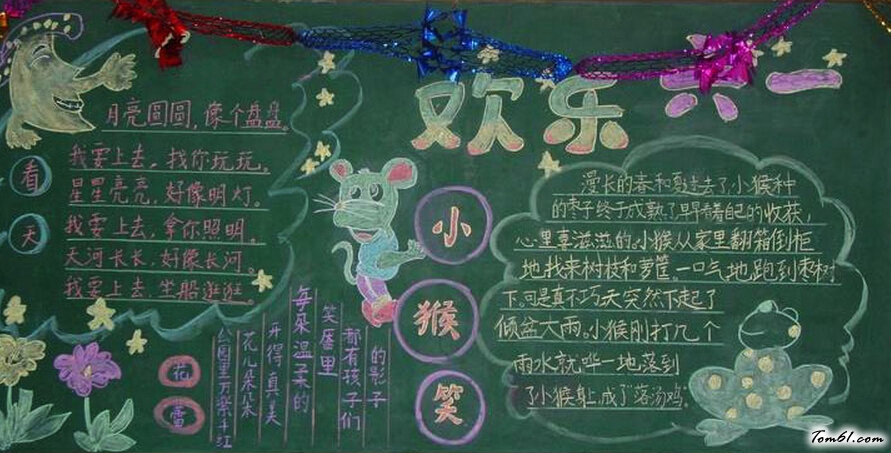 欢乐六一
看天
月亮圆圆,像个盘盘。
我要上去,找你玩玩。
星星亮亮,好像明灯。
我要上去,拿你照明。
天河长长,好像长河。
我要上去,坐船逛逛。
花蕾
公园里万紫千红
花儿朵朵
开得真美
每朵温柔的
笑靥里
都有孩子们
的影子
小猴笑
漫长的春和夏过去了,小猴种
的枣子终于成熟了,早看着自己的收获,
心里喜滋滋的。小猴从家里翻箱倒柜
地找来树枝和萝筐一口气地跑到枣树
下,可是真不巧天突然下起了
倾盆大雨。小猴刚打几个
雨水就哗一地落到
了小猴身上,成了"落汤鸡"。
Tom61.com